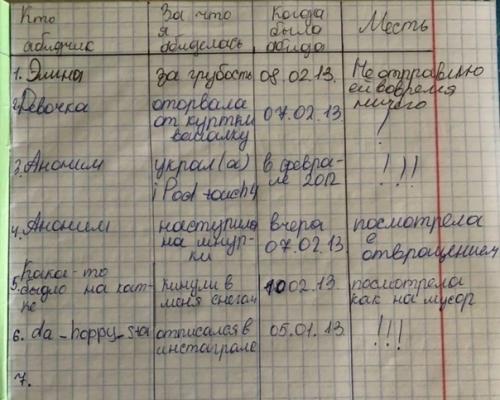 Кто
абидчик
За что
я
абиделась
Когда
была
абида
Месть
1. Элина
за грубость
08.02.13.
Не отправлю
ей вовремя
ничего
2. Девочка
оторвала
от куртки
вешалку
07.02.13
!
3. Аноним
украл(а)
iPod touch4
в февра-
ле 2012
!!!
4. Аноним
наступила
на шнур-
ки
вчера
07.02.13
посмотрела
с
отвращением
5. Какое-то
быдло на кат-
ке
кинули в
меня снегом
10 02.13.
посмотрела
как на мусор
6.
отписался в
инстаграме
05.01.13.
!!!
7.